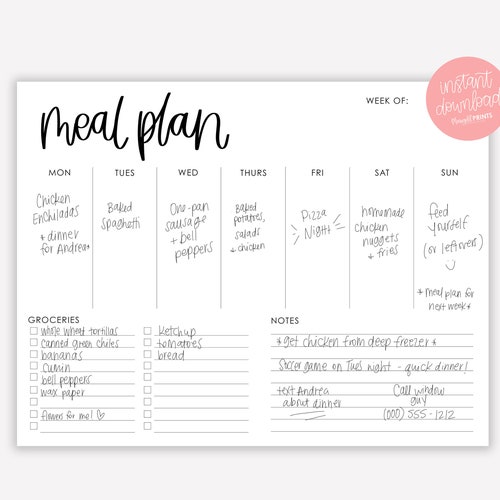 instant
download
PRINTS
meal plan
WEEK OF:
MON
TUES
WED
THURS
FRI
SAT
SUN
Chicken
Enchiladas
* dinner
for Andrea*
Baked
Spaghetti
One-pan
sausage
+ bell
peppers
Baked
potatoes,
salads
+ chicken
Pizza
Night
homemade
chicken
nuggets
+ fries
feed
yourself
(or leftovers)
* meal plan for
next week *
GROCERIES
whole wheat tortillas
canned green chiles
bananas
cumin
bell peppers
wax paper
flowers for me! ♡
Ketchup
tomatoes
bread
NOTES
* get chicken from deep freezer *
Soccer game on Tues night - quick dinner!
text Andrea
about dinner
Call window
guy
(000) 555-1212